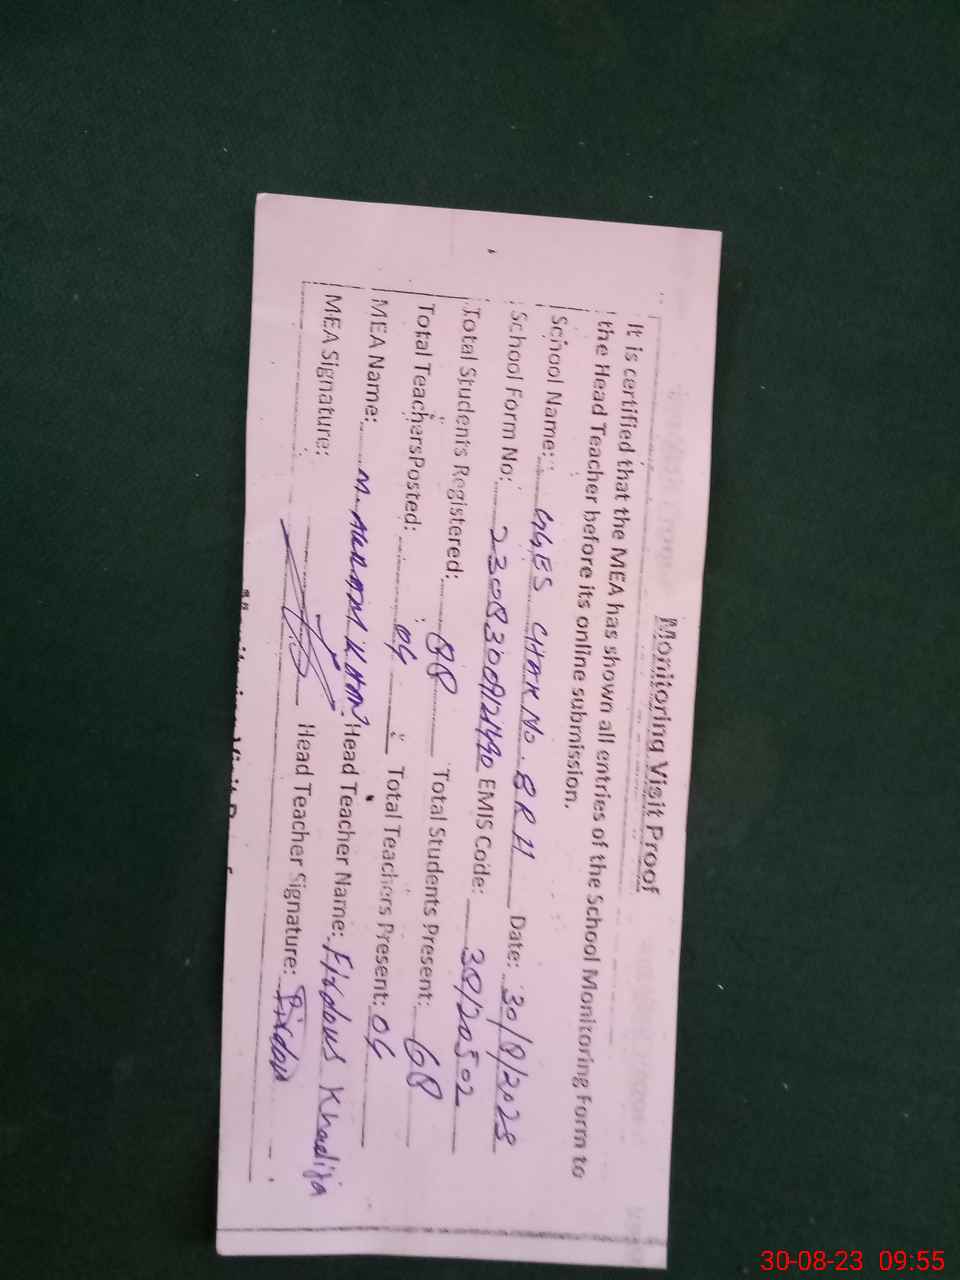 Monitoring Visit Proof
It is certified that the MEA has shown all entries of the School Monitoring Form to
the Head Teacher before its online submission.
School Name: GGES CHAK NO. 8 R H Date: 30/8/2023
School Form No: EMIS Code:
Total Students Registered: 88 Total Students Present: 68
Total Teachers Posted: 04 Total Teachers Present: 04
MEA Name: M. AKRAM KHAN Head Teacher Name: Firdous Khadija
MEA Signature: Head Teacher Signature: Firdous
30-08-23 09:55